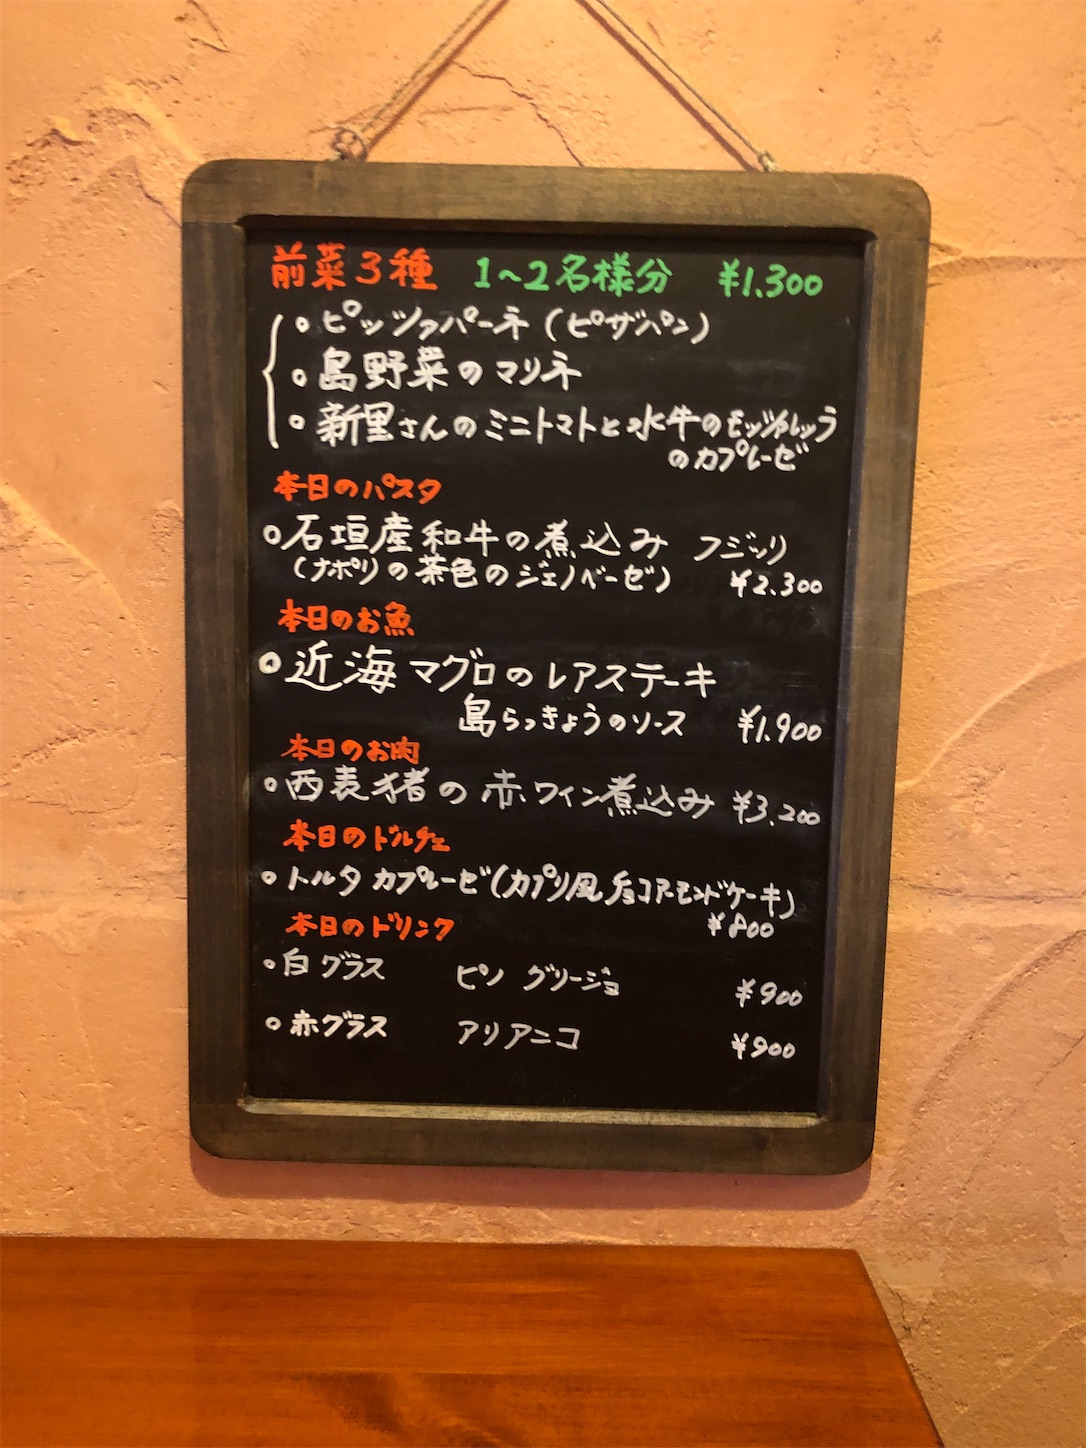 前菜3種 1～2名様分 ¥1.300
・ピッツァパーネ(ピザパン)
・島野菜のマリネ
・新里さんのミニトマトと水牛のモッツァレッラ
のカプレーゼ
本日のパスタ
・石垣産和牛の煮込み フジッリ
(ナポリの茶色のジェノベーゼ) ¥2.300
本日のお魚
・近海マグロのレアステーキ
島らっきょうのソース ¥1.900
本日のお肉
・西表猪の赤ワイン煮込み ¥3.200
本日のドルチェ
・トルタ カプレーゼ(カプリ風チョコアーモンドケーキ)
¥800
本日のドリンク
・白グラス ピノ グリージョ ¥900
・赤グラス アリアニコ ¥900